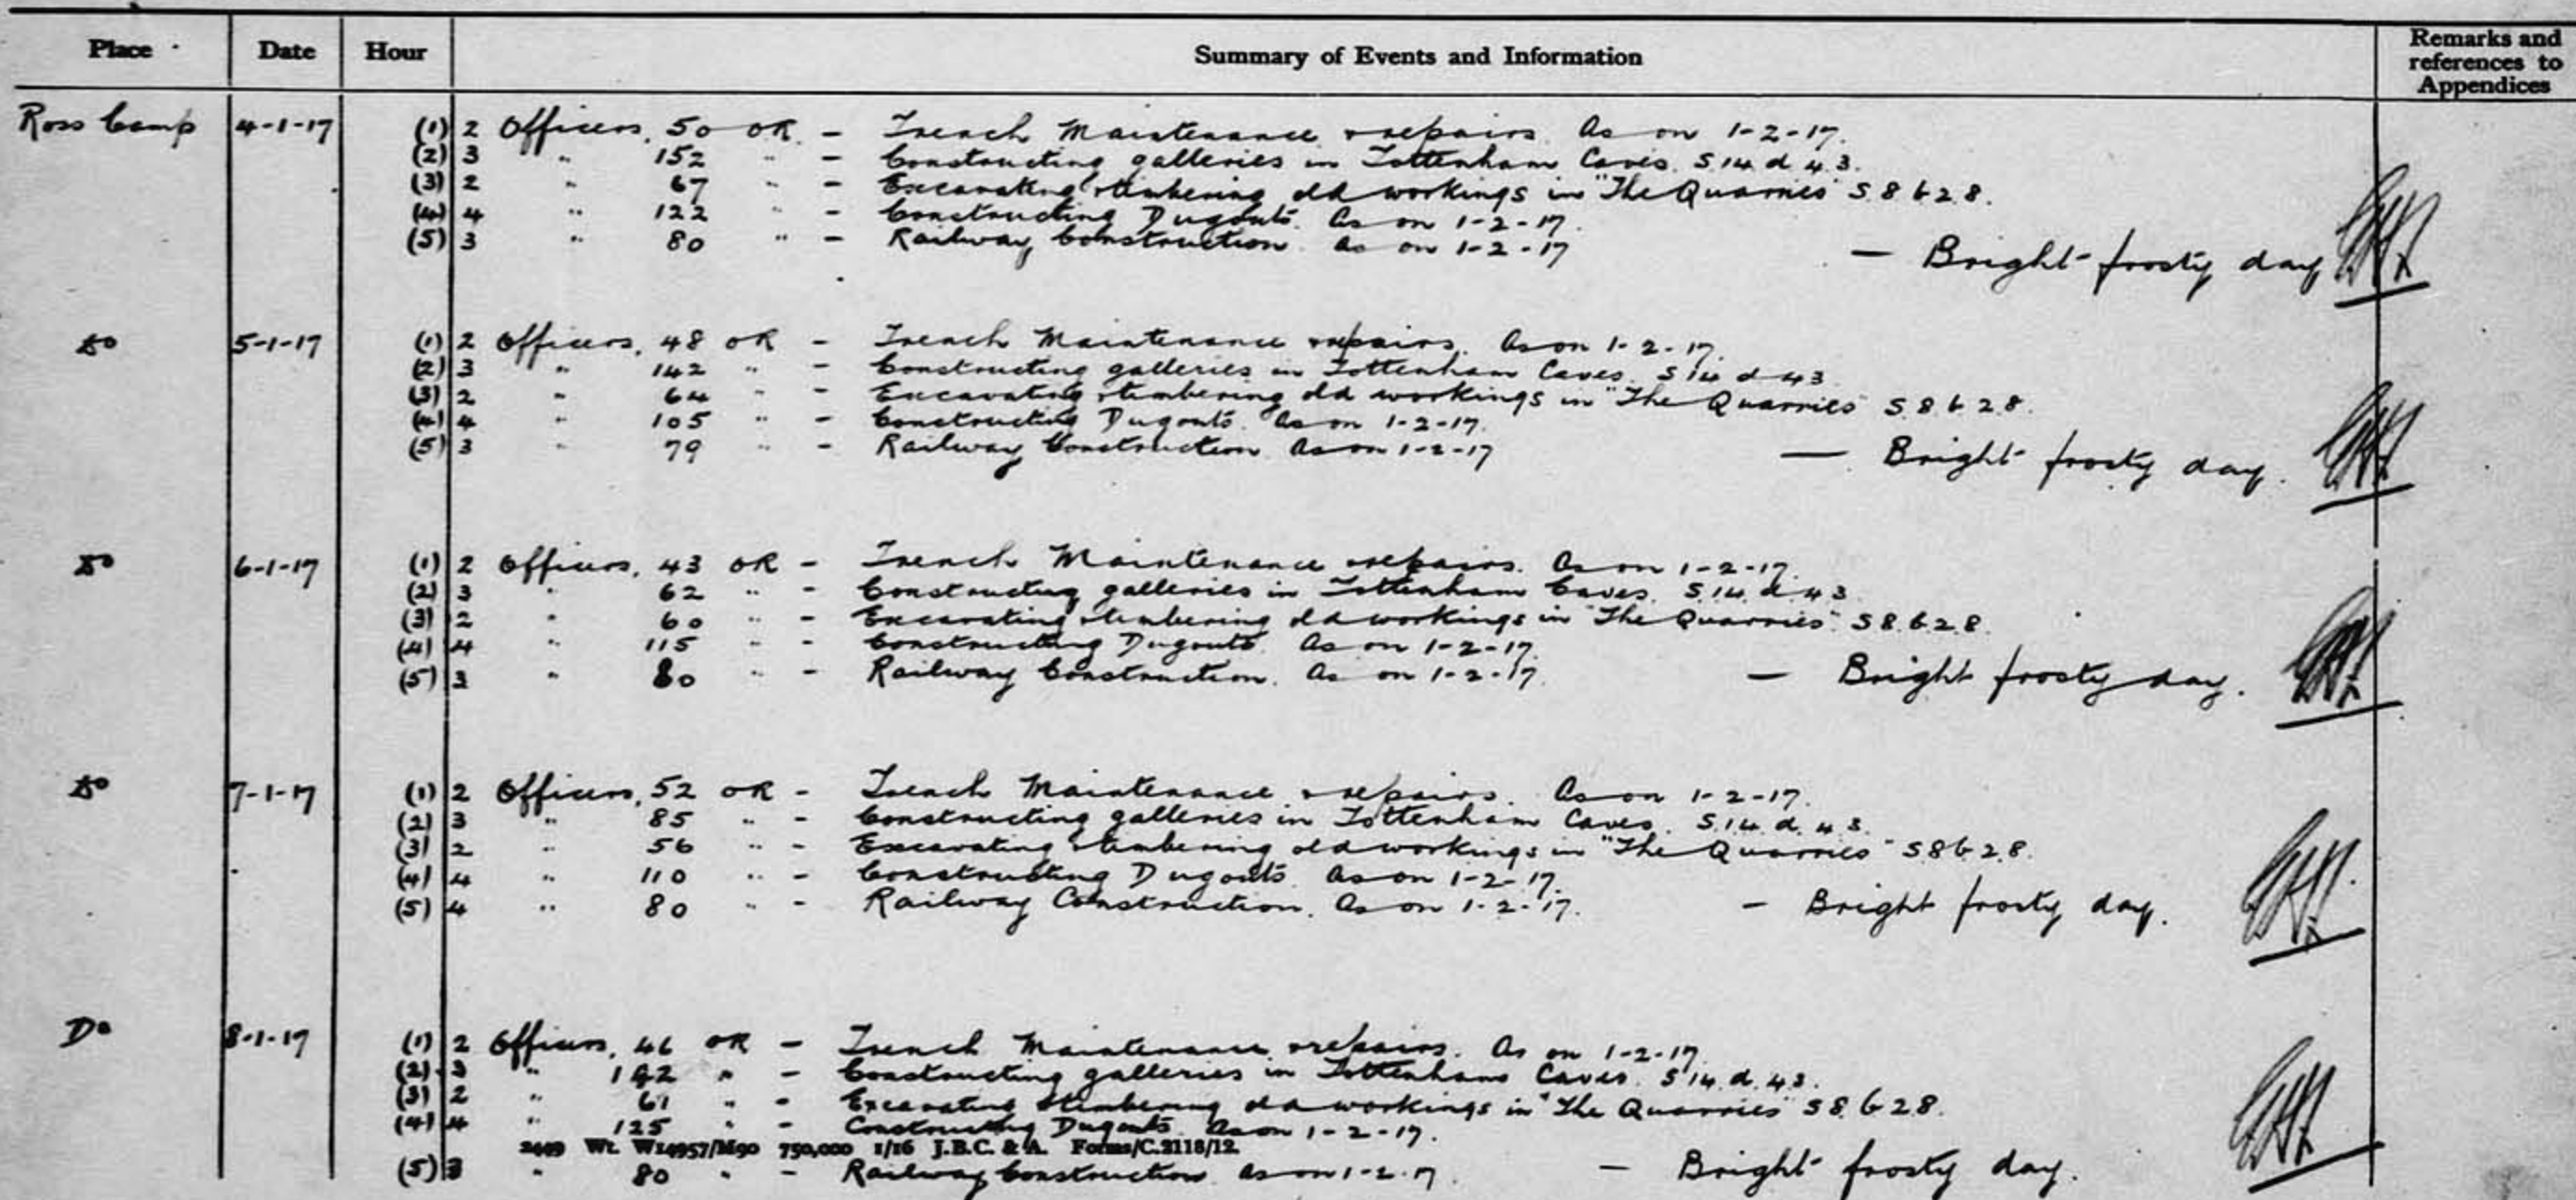 Place Date Hour Summary of Events and Information Remarks and references to Appendices
Ross Camp 4-1-17 (1) 2 Officers, 50 OR. - Trench Maintenance & repairs. As on 1-2-17.
(2) 3 " 152 " - Constructing galleries in Tottenham Caves. S 14 d 4 3.
(3) 2 " 67 " - Excavating & timbering old workings in "The Quarries" S 8 b 2 8.
(4) 4 " 122 " - Constructing Dugouts. As on 1-2-17.
(5) 3 " 80 " - Railway Construction. As on 1-2-17 — Bright frosty day
Do 5-1-17 (1) 2 Officers, 48 OR - Trench Maintenance & repairs. As on 1-2-17.
(2) 3 " 142 " - Constructing galleries in Tottenham Caves. S 14 d 4 3
(3) 2 " 64 " - Excavating & timbering old workings in "The Quarries" S 8 b 2 8.
(4) 4 " 105 " - Constructing Dugouts. As on 1-2-17.
(5) 3 " 79 " - Railway Construction As on 1-2-17 — Bright frosty day.
Do 6-1-17 (1) 2 Officers, 43 OR - Trench Maintenance & repairs. As on 1-2-17.
(2) 3 " 62 " - Constructing galleries in Tottenham Caves. S.14.d.4 3
(3) 2 " 60 " - Excavating & timbering old workings in "The Quarries". S 8.b.2.8.
(4) 4 " 115 " - Constructing Dugouts. As on 1-2-17.
(5) 3 " 80 " - Railway Construction. As on 1-2-17. — Bright frosty day.
Do 7-1-17 (1) 2 Officers, 52 OR - Trench Maintenance & repairs. As on 1-2-17.
(2) 3 " 85 " - Constructing galleries in Tottenham Caves. S.14.d.4 3.
(3) 2 " 56 " - Excavating & timbering old workings in "The Quarries" S 8 b 2.8.
(4) 4 " 110 " - Constructing Dugouts. As on 1-2-17.
(5) 4 " 80 " - Railway Construction. As on 1-2-17. - Bright frosty day.
Do 8-1-17 (1) 2 Officers, 46 OR - Trench Maintenance & repairs. As on 1-2-17
(2) 3 " 142 " - Constructing galleries in Tottenham Caves. S 14.d.4 3.
(3) 2 " 61 " - Excavating & timbering old workings in "The Quarries" S 8.b 2 8.
(4) 4 " 125 " - Constructing Dugouts. As on 1-2-17.
2449 Wt. W14957/M90 750,000 1/16 J.B.C. & A. Forms/C.2118/12.
(5) 3 " 80 " - Railway Construction As on 1-2-17. — Bright frosty day.